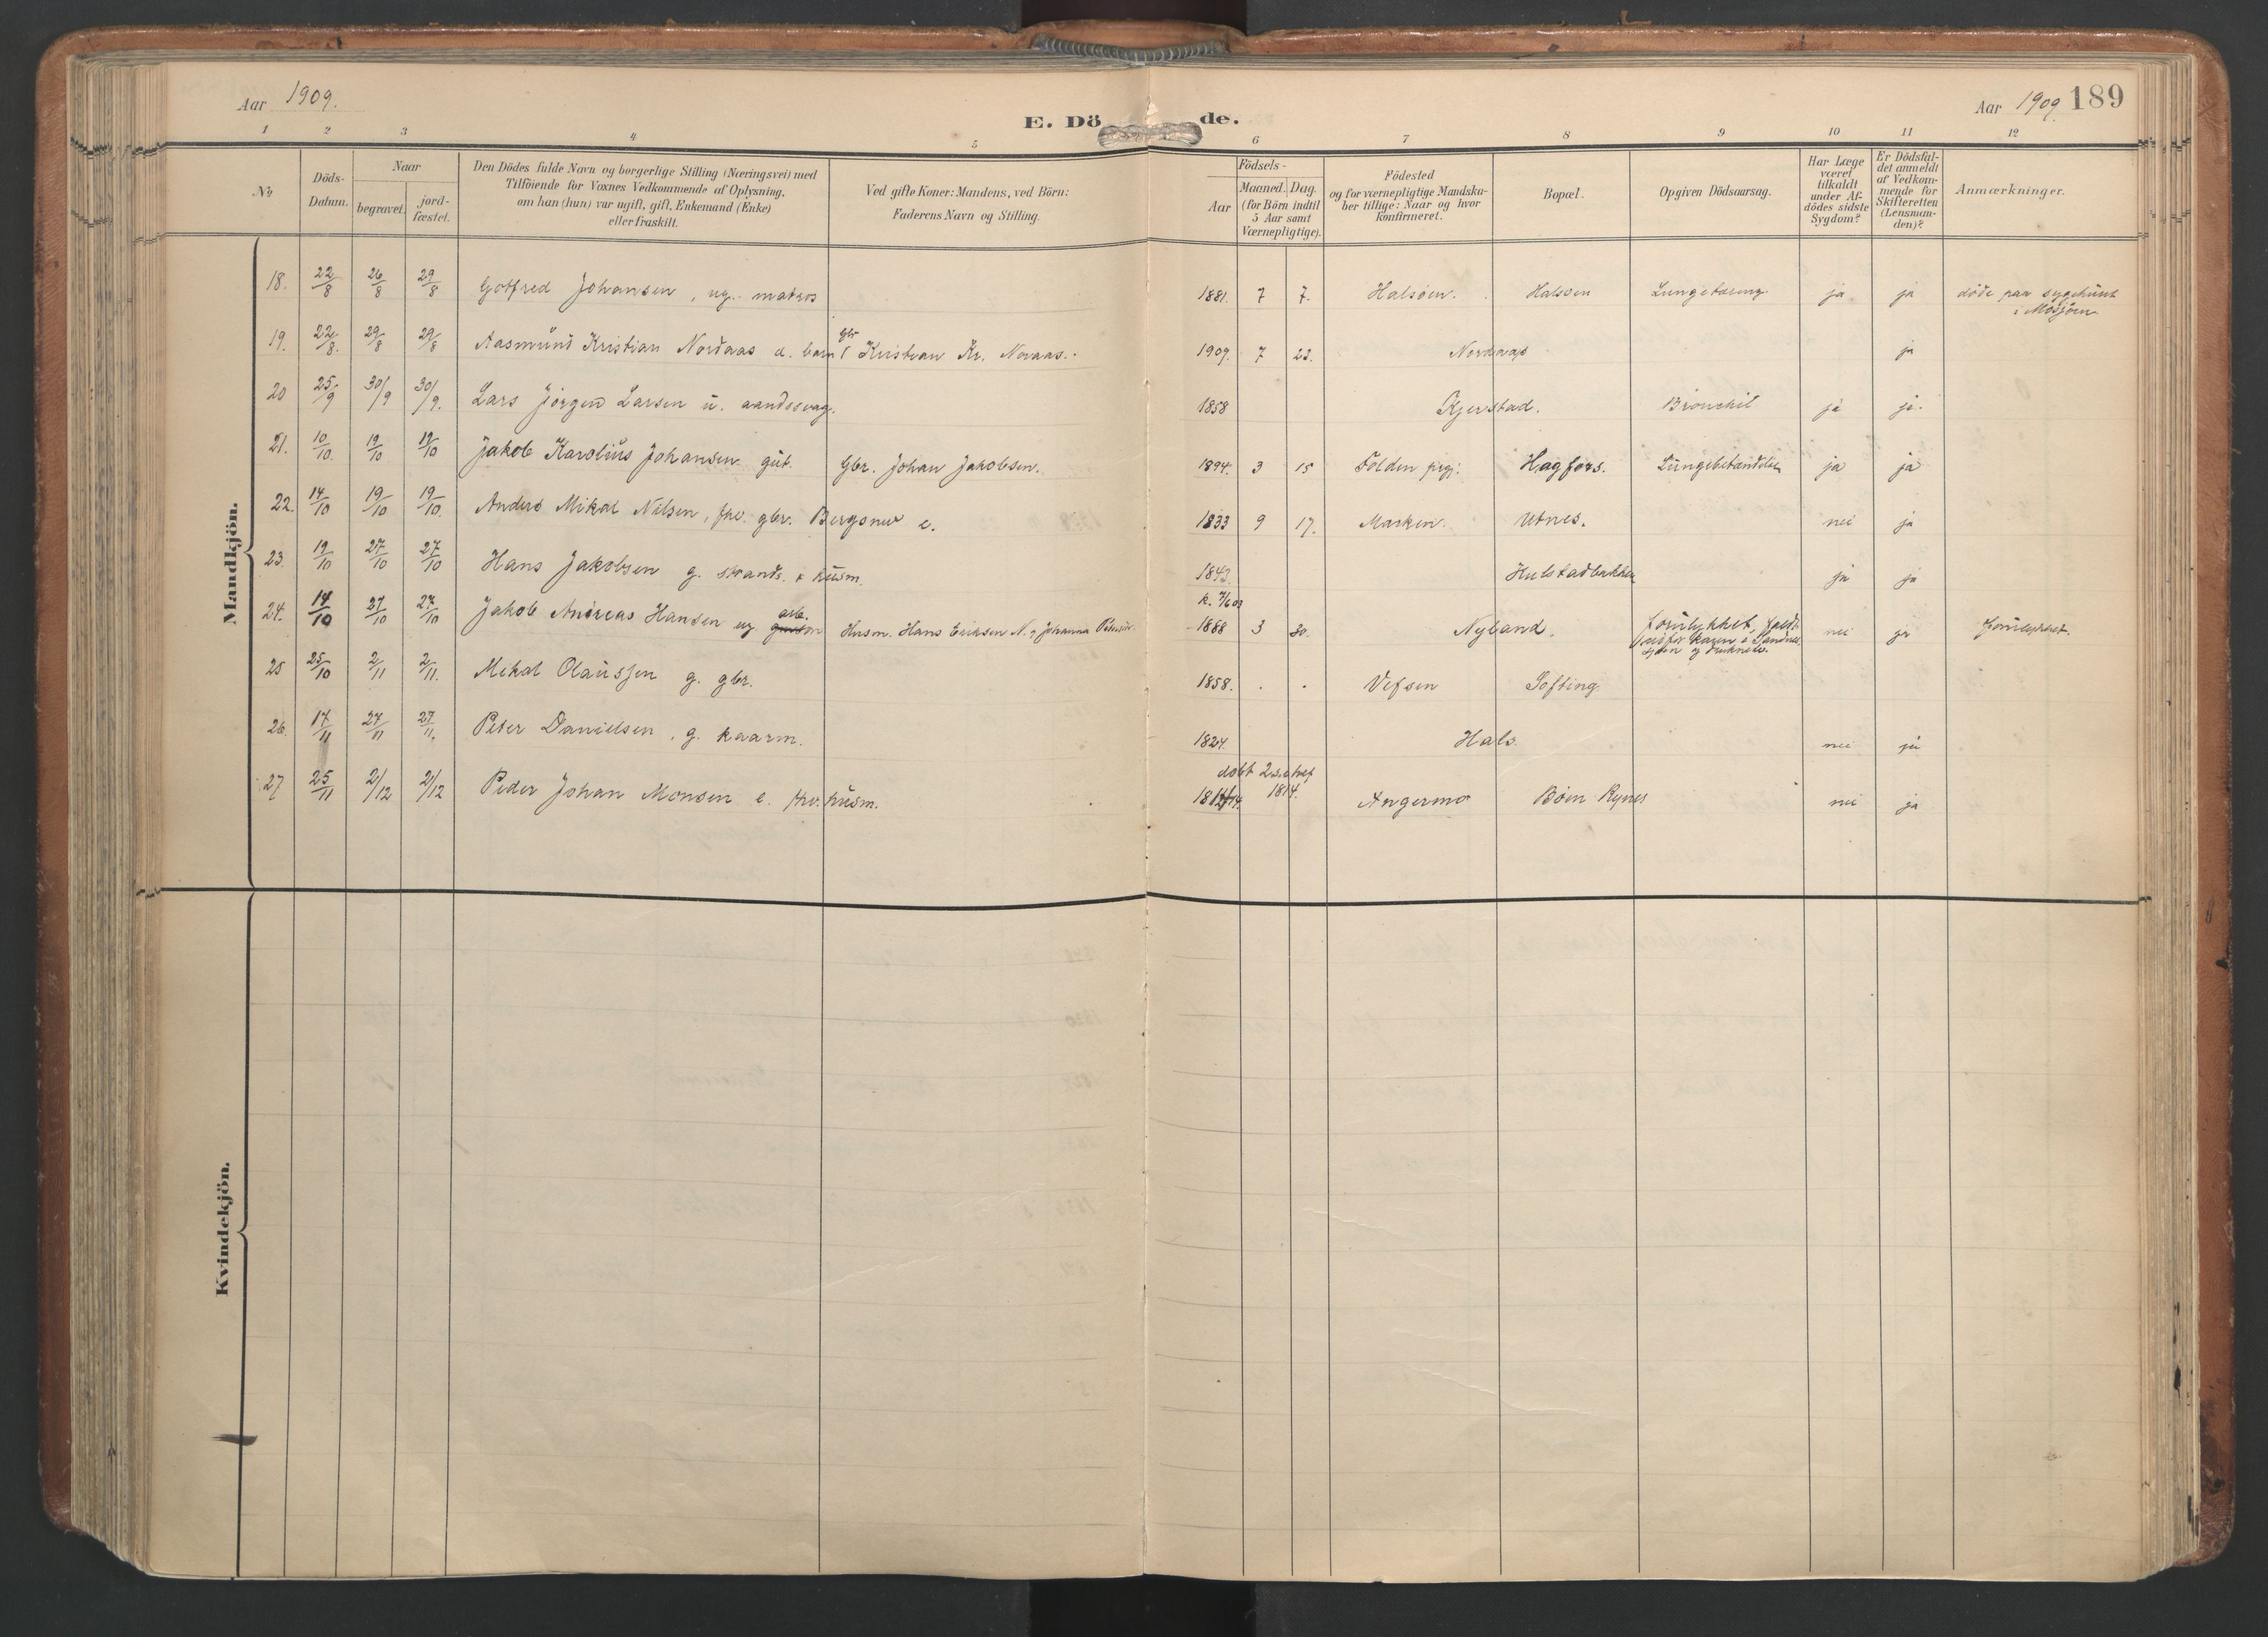 Aar 1909.
E. Döde.
Aar 1909. 189
1 2 3 4 5 6 7 8 9 10 11 12
No.
Döds-Datum.
Naar
begravet.
jord-fæstet.
Den Dödes fulde Navn og borgerlige Stilling (Næringsvei) med
Tilföiende for Voxnes Vedkommende af Oplysning,
om han (hun) var ugift, gift, Enkemand (Enke)
eller fraskilt.
Ved gifte Koner: Mandens, ved Börn:
Faderens Navn og Stilling.
Födsels-
Aar
Maaned. Dag.
(for Börn indtil
5 Aar samt
Værnepligtige).
Födested
og for værnepligtige Mandska-
ber tillige: Naar og hvor
konfirmeret.
Bopæl.
Opgiven Dödsaarsag.
Har Læge
været
tilkaldt
under Af-
dödes sidste
Sygdom?
Er Dödsfal-
det anmeldt
af Vedkom-
mende for
Skifteretten
(Lensman-
den)?
Anmærkninger.
Mandkjön.
18. 22/8 26/8 29/8 Gotfred Johansen, ug. matros 1881. 7 7. Halsöen. Halsöen Lungetæring ja ja döde paa sygehuset
i Mosjöen
19. 22/8. 29/8 29/8 Aasmund Kristian Nordaas d. barn gbr Kristian Kr. Novaas. 1909. 7 23. Nordaas ja
20 25/9 30/9 30/9. Lars Jörgen Larsen u. aandssvag. 1858 Kjerstad. Bronchit ja ja.
21. 10/10. 19/10 19/10 Jakob Karolius Johansen gut. Gbr. Johan Jakobsen. 1894. 3 15 Folden prgj. Hagfors. Lungebetændelse ja ja
22. 14/10 19/10 19/10. Anders Mikal Nilsen, fhv. gbr. Bergsnev e. 1833 9 17. Marken. Utnes. nei ja
23. 19/10 27/10 27/10 Hans Jakobsen g. strands. & husm. 1843. Hulstadbakken ja ja
k. 7/6 03
24. 14/10 27/10 27/10 Jakob Andreas Hansen ug arb. Husm. Hans Eriksen N. og Johanna 1888 3 30. Nyland. forulykket, faldt
nei ja forulykket.
25 25/10 2/11 2/11. Mikal Olaussen g. gbr. 1858. . . Vefsen Softing
26. 17/11 27/11 27/11. Peter Danielsen, g. kaarm. 1824. Hals. nei ja
döbt 1814.
27 25/11 2/12 2/12 Peder Johan Monsen e. fhv. husm. Angermo Böen Rynes nei ja
Kvindekjön.